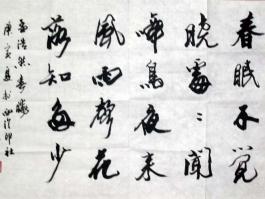 春眠不覺
曉處〻聞
啼鳥夜来
風雨聲花
落知多少
孟浩然春曉
庚寅夏西泠印社